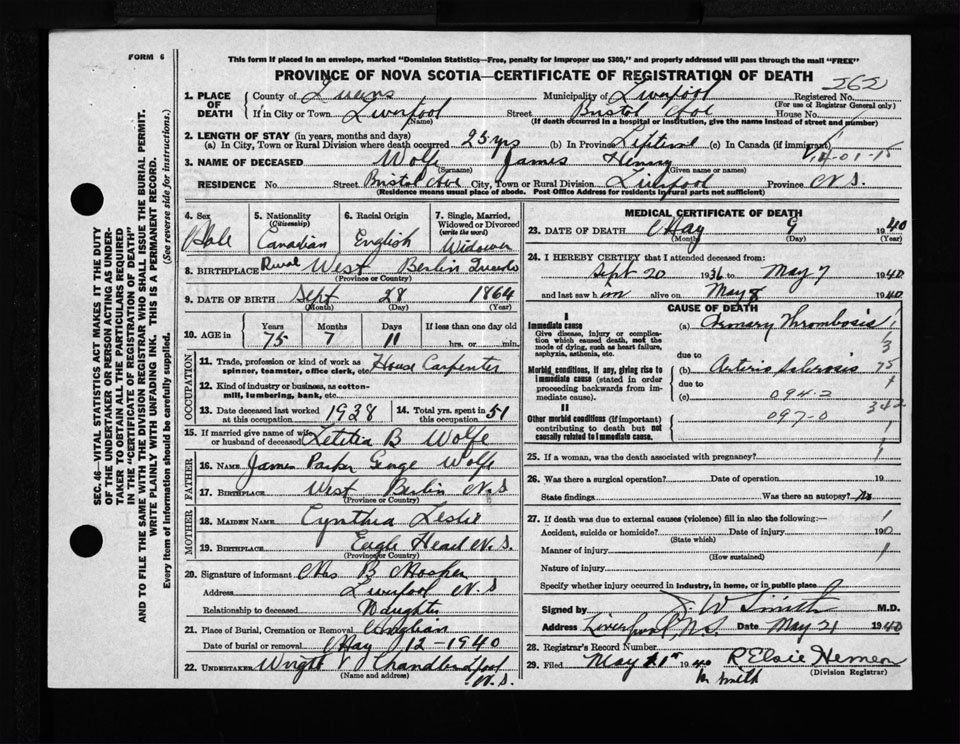 FORM 6
This form if placed in an envelope, marked "Dominion Statistics—Free, penalty for improper use $300," and properly addressed will pass through the mail "FREE"
PROVINCE OF NOVA SCOTIA—CERTIFICATE OF REGISTRATION OF DEATH
262
1. PLACE OF DEATH County of Queens Municipality of Liverpool Registered No.
(For use of Registrar General only)
If in City or Town Liverpool Street Bristol Ave House No.
(Name) (If death occurred in a hospital or institution, give the name instead of street and number)
2. LENGTH OF STAY (in years, months and days)
(a) In City, Town or Rural Division where death occurred 25 yrs (b) In Province Lifetime (c) In Canada (if immigrant)
14-01-15
3. NAME OF DECEASED Wolfe James Henry
(Surname) (Given name or names)
RESIDENCE No. Street Bristol Ave City, Town or Rural Division Liverpool Province N.S.
(Residence means usual place of abode. Post Office Address for residents in rural parts not sufficient)
4. Sex Male
5. Nationality (Citizenship) Canadian
6. Racial Origin English
7. Single, Married, Widowed or Divorced (write the word) Widower
8. BIRTHPLACE Rural West Berlin Queens
(Province or Country)
9. DATE OF BIRTH Sept 28 1864
(Month) (Day) (Year)
10. AGE in Years 75 Months 7 Days 11 If less than one day old hrs. or min.
OCCUPATION
11. Trade, profession or kind of work as spinner, teamster, office clerk, etc. House Carpenter
12. Kind of industry or business, as cotton-mill, lumbering, bank, etc.
13. Date deceased last worked at this occupation 1938 14. Total yrs. spent in this occupation 51
15. If married give name of wife or husband of deceased Letitia B Wolfe
FATHER
16. NAME James Parker George Wolfe
17. BIRTHPLACE West Berlin N.S
(Province or Country)
MOTHER
18. MAIDEN NAME Cynthia Leslie
19. BIRTHPLACE Eagle Head N.S.
(Province or Country)
20. Signature of informant Mrs B
Address Liverpool N.S
Relationship to deceased Daughter
21. Place of Burial, Cremation or Removal Anglican
Date of burial or removal May 12 1940
22. UNDERTAKER Wright V Chandler L'pool N.S.
(Name and address)
MEDICAL CERTIFICATE OF DEATH
23. DATE OF DEATH May 9 1940
(Month) (Day) (Year)
24. I HEREBY CERTIFY that I attended deceased from:
Sept 20 1936 to May 7 1940
and last saw him alive on May 8 1940
CAUSE OF DEATH
I
Immediate cause
Give disease, injury or complication which caused death, not the mode of dying, such as heart failure, asphyxia, asthenia, etc.
(a) Coronary Thrombosis
due to
Morbid conditions, if any, giving rise to immediate cause (stated in order proceeding backwards from immediate cause).
(b) Arterio Sclerosis
due to
(c) 094-2
II
Other morbid conditions (if important) contributing to death but not causally related to immediate cause.
097-0
1
3
75
1
342
25. If a woman, was the death associated with pregnancy?
26. Was there a surgical operation? Date of operation 19
State findings Was there an autopsy? No
27. If death was due to external causes (violence) fill in also the following:—
Accident, suicide or homicide? Date of injury 19
(State which)
Manner of injury
(How sustained)
Nature of injury
Specify whether injury occurred in industry, in home, or in public place
Signed by J. W Smith M.D.
Address Liverpool N.S. Date May 21 1940
28. Registrar's Record Number
29. Filed May 21st 1940 R Elsie
(Division Registrar)
Smith
SEC. 46—VITAL STATISTICS ACT MAKES IT THE DUTY
OF THE UNDERTAKER OR PERSON ACTING AS UNDERTAKER TO OBTAIN ALL THE PARTICULARS REQUIRED
IN THE "CERTIFICATE OF REGISTRATION OF DEATH"
AND TO FILE THE SAME WITH THE DIVISION REGISTRAR WHO SHALL ISSUE THE BURIAL PERMIT.
WRITE PLAINLY WITH UNFADING INK. THIS IS A PERMANENT RECORD.
Every item of information should be carefully supplied. (See reverse side for instructions.)